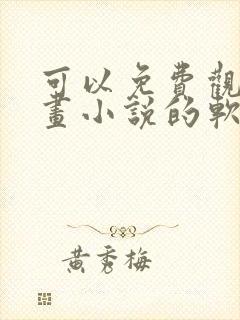 可以免費觀
畫小説的軟
黃秀梅